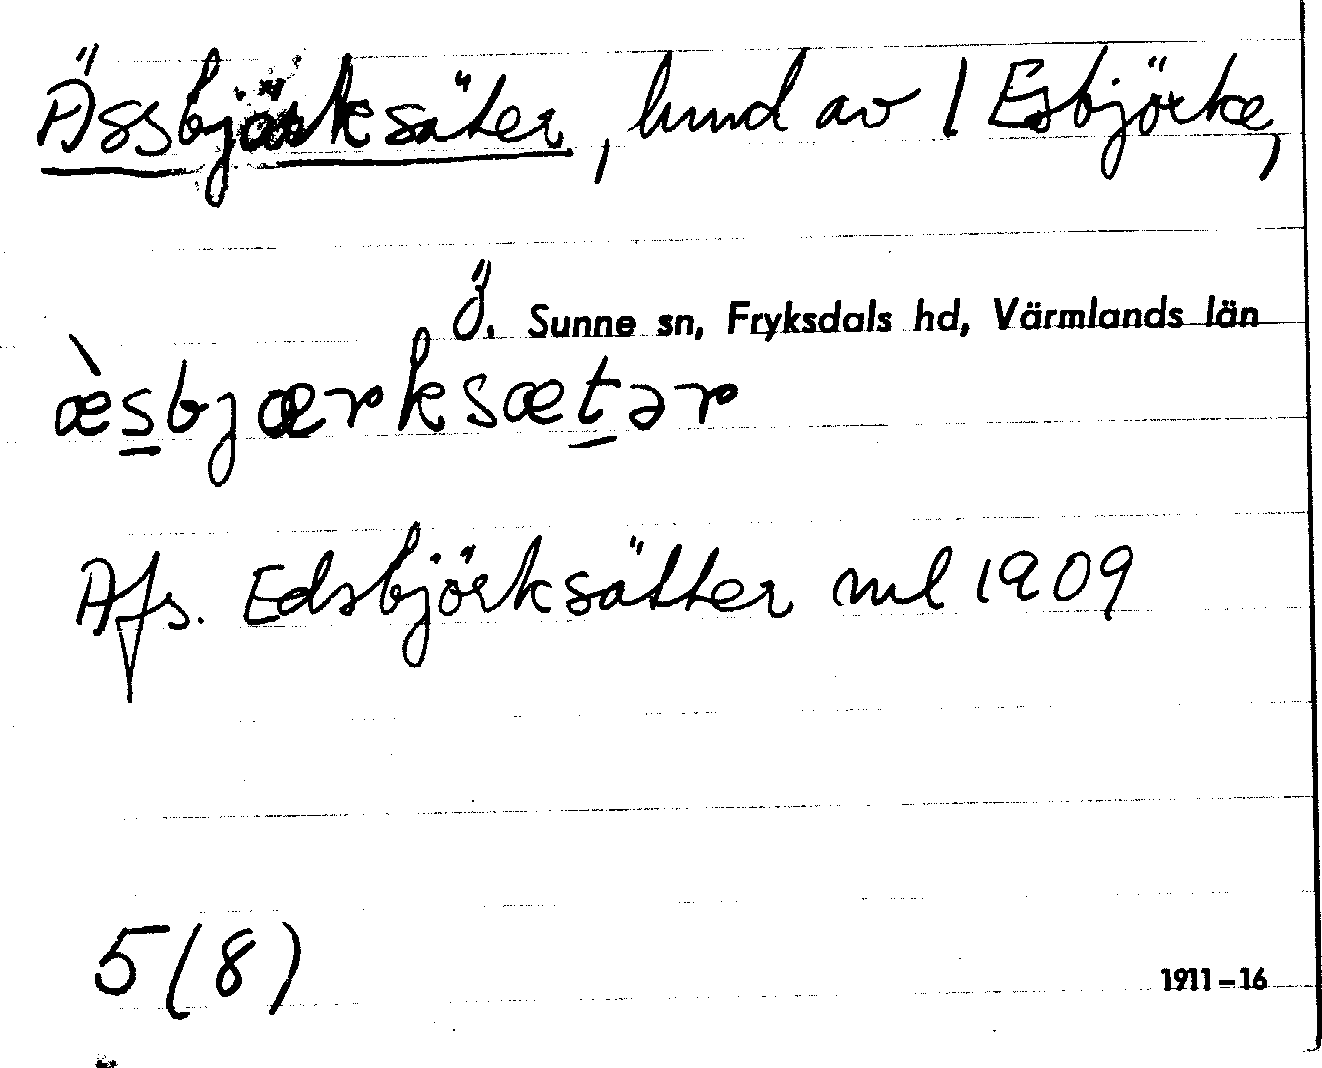 Ässbjörksäter, lund av 1 Esbjörke,
Ö. Sunne sn, Fryksdals hd, Värmlands län
æ̀s̲bjærksæt̲ər
Afs. Edsbjörksätter ml 1909
5(8)
1911–16